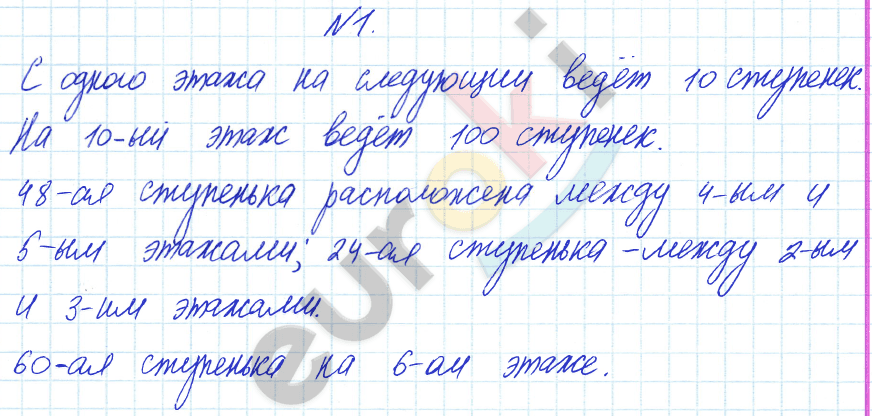 №1.
С одного этажа на следующий ведёт 10 ступенек.
На 10-ый этаж ведёт 100 ступенек.
48-ая ступенька расположена между 4-ым и
5-ым этажами; 24-ая ступенька - между 2-ым
и 3-им этажами.
60-ая ступенька на 6-ом этаже.
euroki